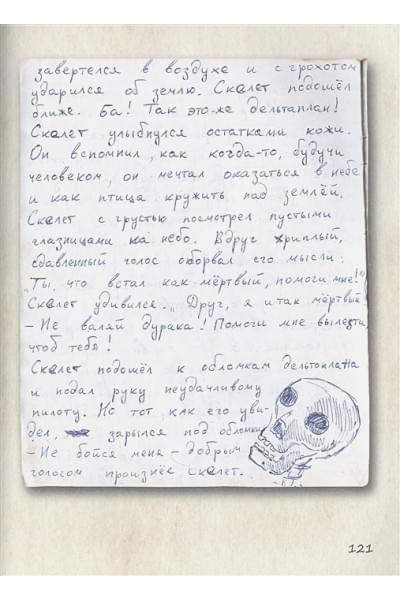 завертелся в воздухе и с грохотом
ударился об землю. Скелет подошёл
ближе. Ба! Так это-же дельтаплан!
Скелет улыбнулся остатками кожи.
Он вспомнил, как когда-то, будучи
человеком, он мечтал оказаться в небе
и как птица кружить над землёй.
Скелет с грустью посмотрел пустыми
глазницами на небо. Вдруг хриплый,
сдавленный голос оборвал его мысли:
"Ты, что встал как мёртвый, помоги мне!"
Скелет удивился. "Друг, я итак мёртвый
- Не валяй дурака! Помоги мне вылезти,
чтоб тебя!
Скелет подошёл к обломкам дельтоплана
и подал руку неудачливому
пилоту. Но тот, как его уви-
дел, зарылся под обломки
- Не бойся меня - добрым
голосом произнёс скелет.
121